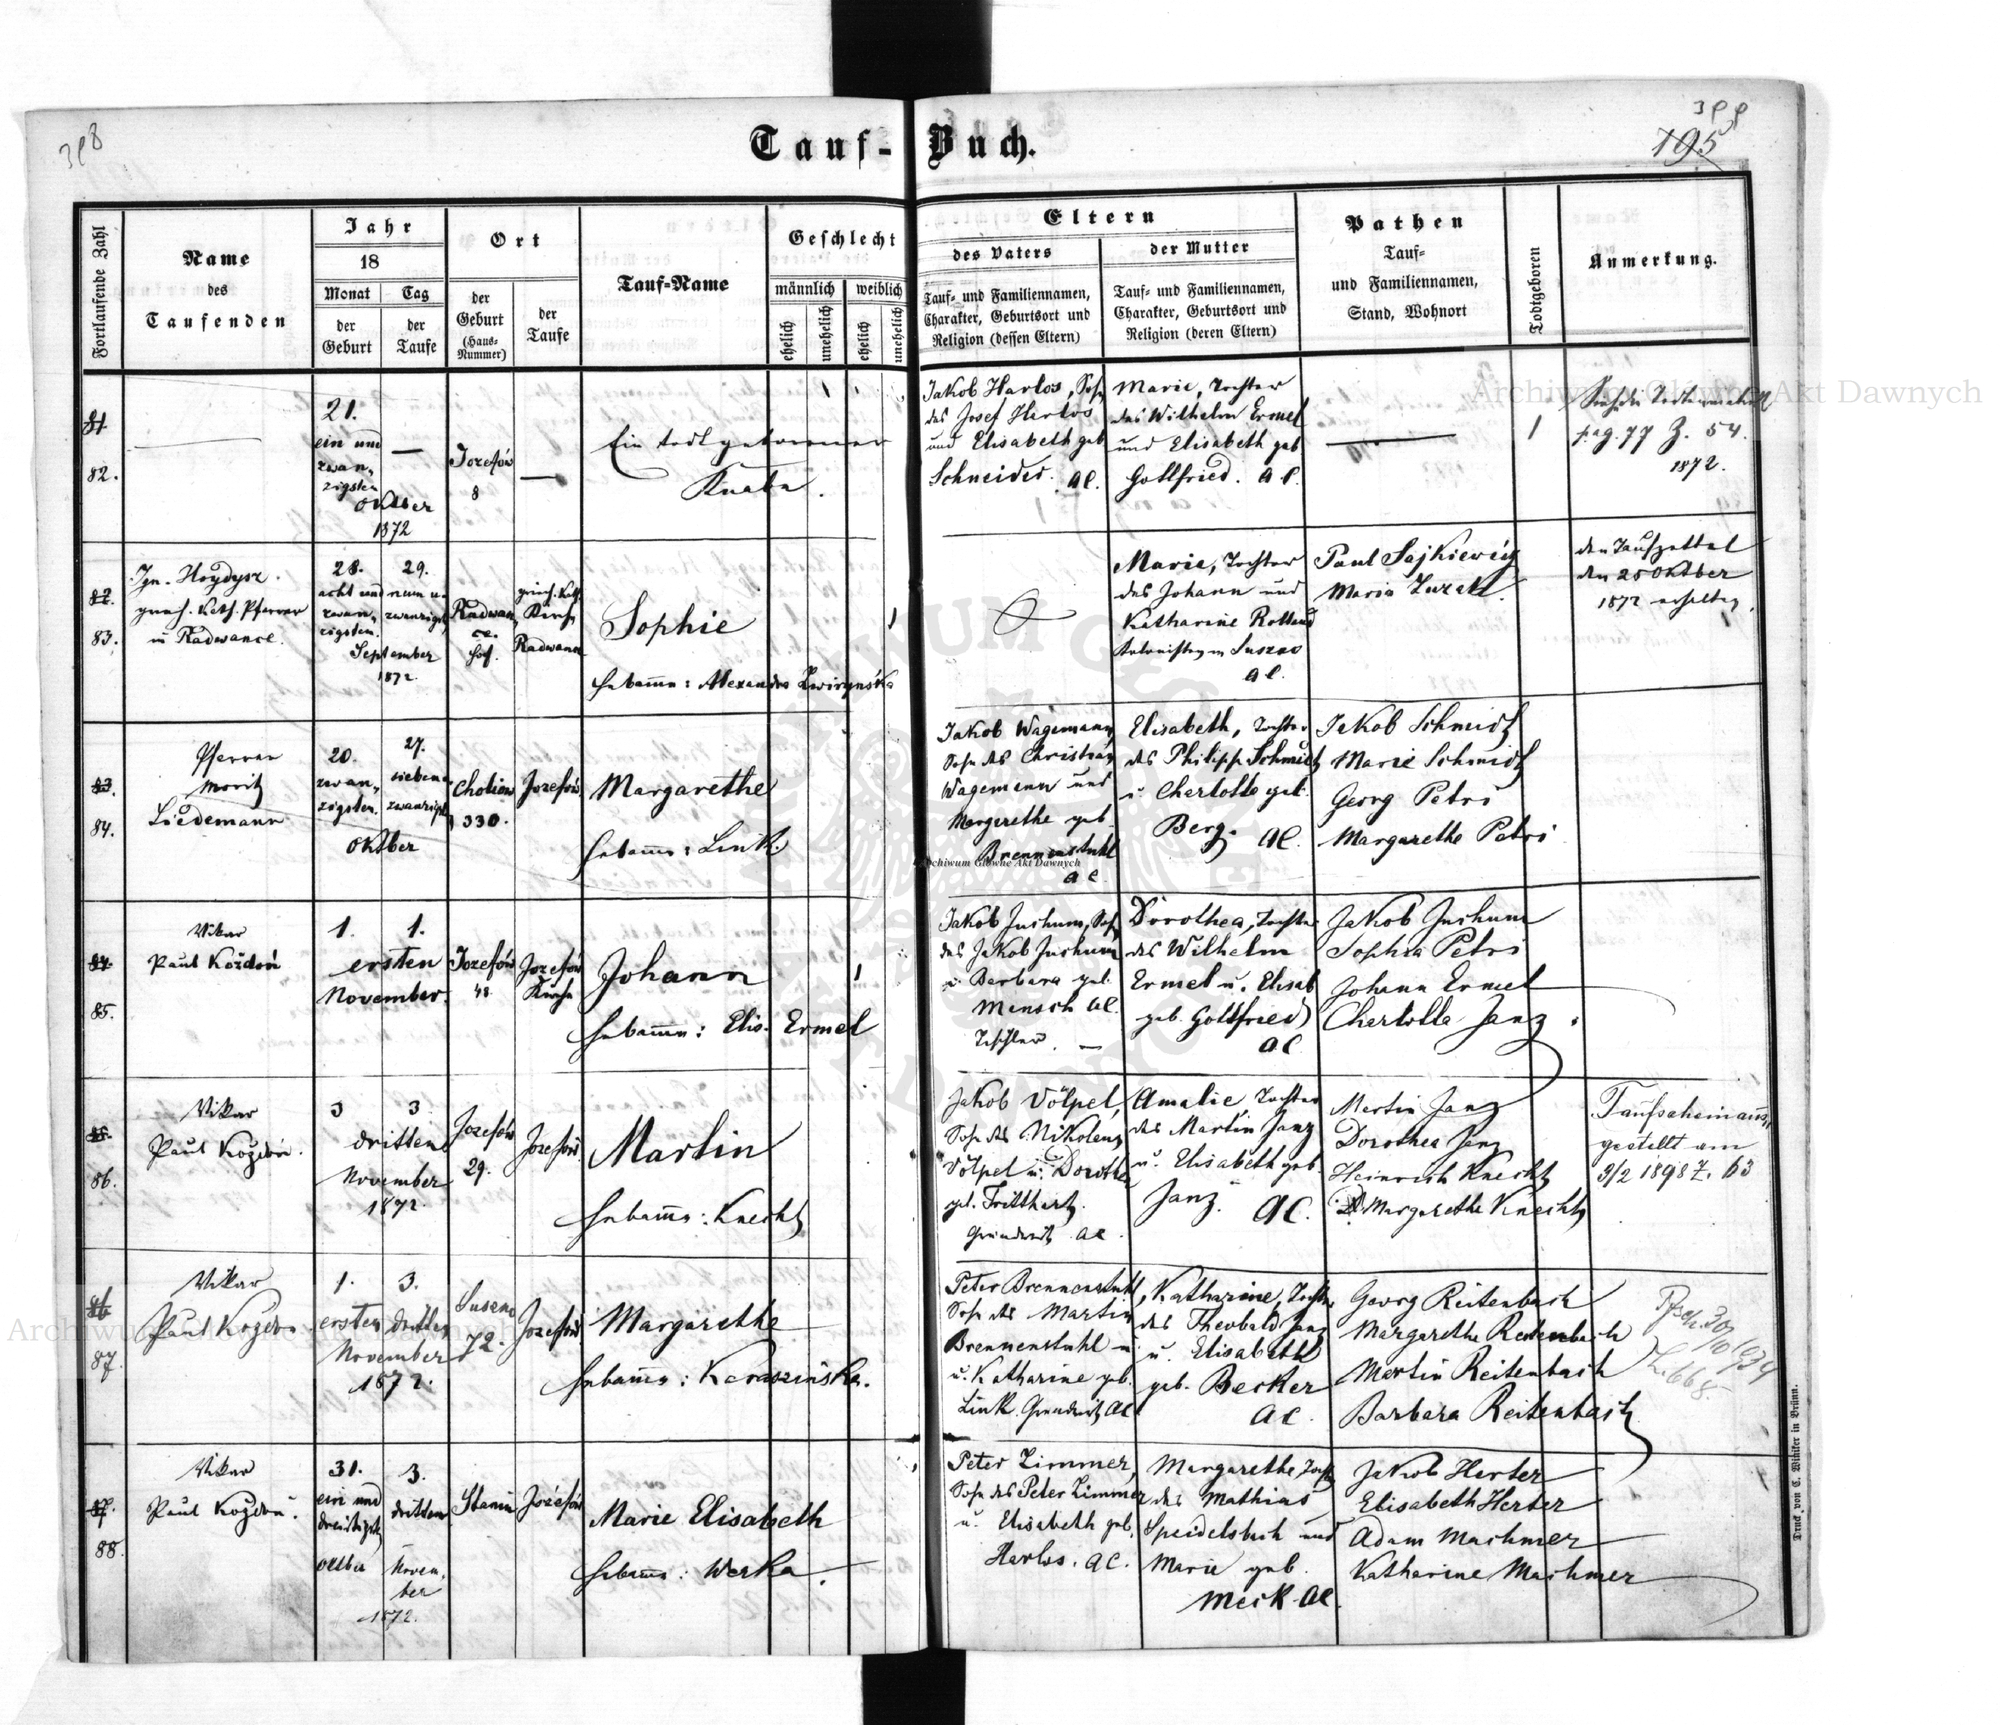 398
399
195
Tauf-Buch.
Fortlaufende Zahl
Name
des
Taufenden
Jahr
18
Monat
Tag
der
Geburt
der
Taufe
Ort
der
Geburt
(Haus-
Nummer)
der
Taufe
Tauf-Name
Geschlecht
männlich
weiblich
ehelich
unehelich
ehelich
unehelich
Eltern
des Vaters
der Mutter
Tauf- und Familiennamen,
Charakter, Geburtsort und
Religion (dessen Eltern)
Tauf- und Familiennamen,
Charakter, Geburtsort und
Religion (deren Eltern)
Pathen
Tauf-
und Familiennamen,
Stand, Wohnort
Todtgeboren
Anmerkung.
81
82.
21.
ein und
zwan-
zigsten
Oktber
1872
Jozefów
8
Ein todtgeborner
Knabe.
Jakob Harlos, Sohn
des Josef Harlos
und Elisabeth geb
Schneider. AC.
Marie, Tochter
des Wilhelm Ermel
und Elisabeth geb
Gottfried. A C.
1
pag. 77 Z. 54.
1872.
82.
83.
Ign. Hoydysz.
griech. kath. Pfarrer
in Radwance.
28.
acht und
zwan-
zigsten
29.
neun u.
zwanzigst
September
1872.
Radwan
ce.
Hof.
griech. kath.
Kirche
Radwance
Sophie
Hebamme: Alexandra Zwirynska
1
Marie, Tochter
des Johann und
Katharine Rolland
Kolonisten in Suszno
A C.
Paul Sajkiewicz
Maria Zurak.
den Taufzettel
den 25 Oktber
1872 erhalten.
83.
84.
Pfarrer
Moritz
Liedemann
20.
zwan-
zigsten.
27.
sieben-
zwanzigst
Oktber
Cholion
330.
Jozefów
Margarethe
Hebamme: Link.
Jakob Wagemann,
Sohn des Christian
Wagemann und
Margarethe geb.
Brennenstuhl
A C.
Elisabeth, Tochter
des Philipp Schmidt
u. Charlotte geb.
Berg. AC.
Jakob Schmidt
Marie Schmidt
Georg Petri
Margarethe Petri
84.
85.
Vikar
Paul Koždoń
1.
1.
ersten
November.
Jozefów
48
Jozefów
Kirche
Johann
Hebamme: Elis. Ermel
1
Jakob Juchum, Sohn
des Jakob Juchum
u. Barbara geb.
Mensch AC.
Tischler.
Dorothea, Tochter
des Wilhelm
Ermel u. Elisab
geb. Gottfried
AC
Jakob Juchum
Sophia Petri
Johann Ermel
Charlotte Janz.
85.
86.
Vikar
Paul Koždoń.
3
3.
dritten
November
1872.
Jozefów
29.
Jozefów.
Martin
Hebamme: Knecht
Jakob Völpel,
Sohn des Nikolaus
Völpel u. Dorothea
geb. Tritthart.
Grundwirth AC.
Amalie, Tochter
des Martin Janz
u. Elisabeth geb.
Janz. AC.
Martin Janz
Dorothea Janz
Heinrich Knecht
Margarethe Knecht
Taufschein aus-
gestellt am
3/2 1898 Z. 63
86
87.
Vikar
Paul Koždoń
1.
ersten
3.
dritten
November
1872.
Suszno
72.
Jozefów
Margarethe
Hebamme: Karasinska.
Peter Brennenstuhl,
Sohn des Martin
Brennenstuhl u.
u. Katharine geb.
Link. Grundwirth AC
Katharine, Tochter
des Theobald Janz
u. Elisabeth
geb. Becker
AC.
Georg Reitenbach
Margarethe Reitenbach
Martin Reitenbach
Barbara Reitenbach
Z. 668.
87.
88.
Vikar
Paul Koždoń.
31.
ein und
dreißigsten
Oktber
3.
dritten
Novem-
ber
1872.
Stanin
Jozefów
Marie Elisabeth
Hebamme: Werka.
Peter Zimmer,
Sohn des Peter Zimmer
u. Elisabeth geb.
Harlos. AC.
Margarethe Tocht
des Mathias
Speidelsbach und
Marie geb.
Meck AC.
Jakob Herter
Elisabeth Herter
Adam Machmer
Katharine Machmer
Druck von C. Winiker in Brünn.
Archiwum Główne Akt Dawnych
Archiwum Główne Akt Dawnych
Archiwum Główne Akt Dawnych
ARCHIWUM GŁÓWNE AKT DAWNYCH